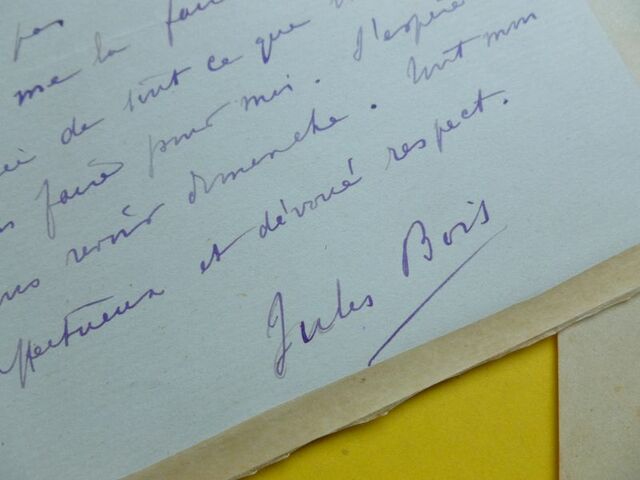 pas
me la faire
de tout ce que
faire pour moi. J'espère
revoir dimanche. Tout mon
affectueux et dévoué respect.
Jules Bois